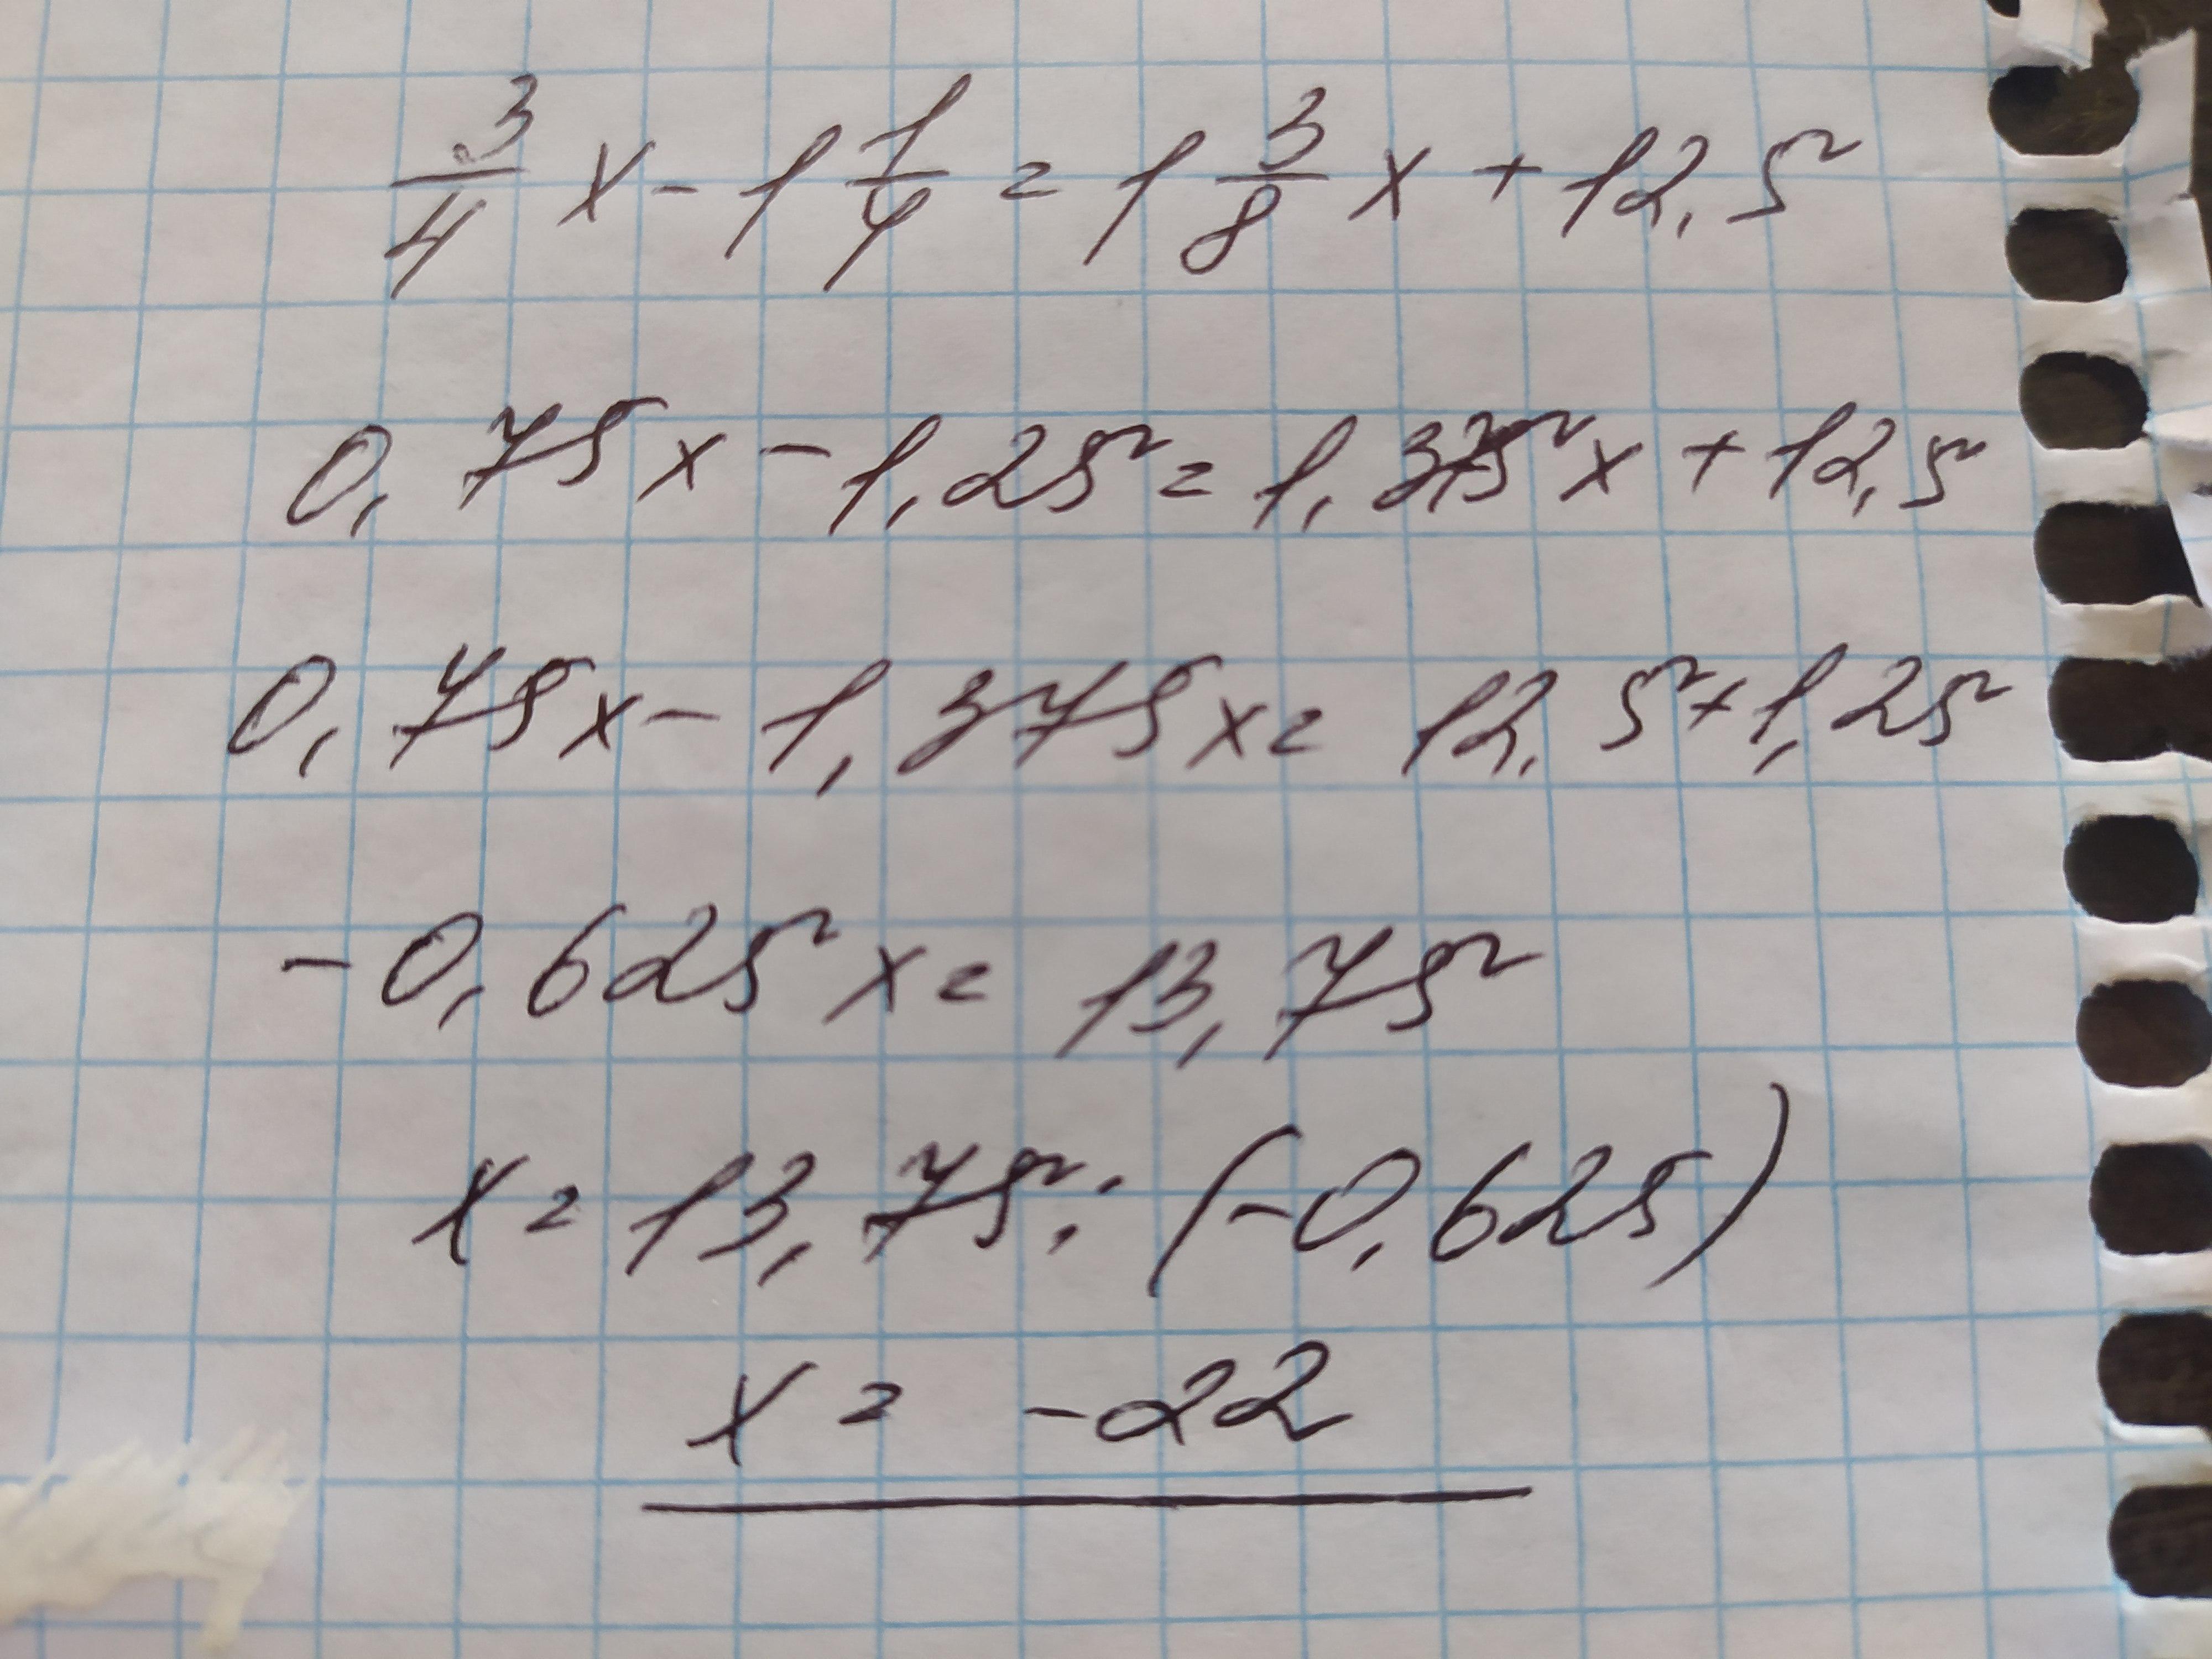 3/4 x - 1 1/4 = 1 3/8 x + 12,5
0,75x - 1,25 = 1,375x + 12,5
0,75x - 1,375x = 12,5 + 1,25
-0,625x = 13,75
x = 13,75 : (-0,625)
x = -22